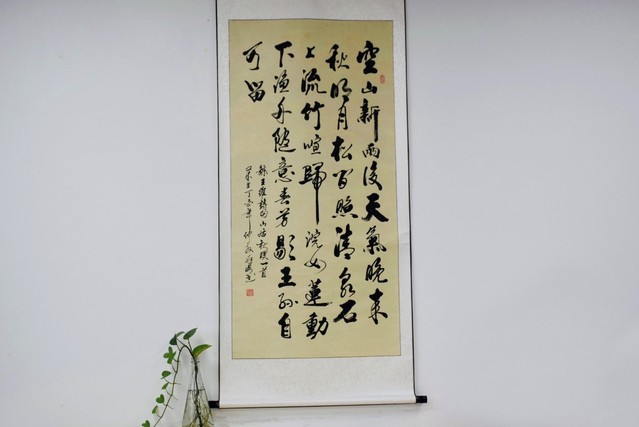 空山新雨後天氣晚来
秋明月松間照清泉石
上流竹喧歸浣女蓮動
下漁舟隨意春芳歇王孫自
可留
王維詩山居秋暝一首
丁亥年仲夏